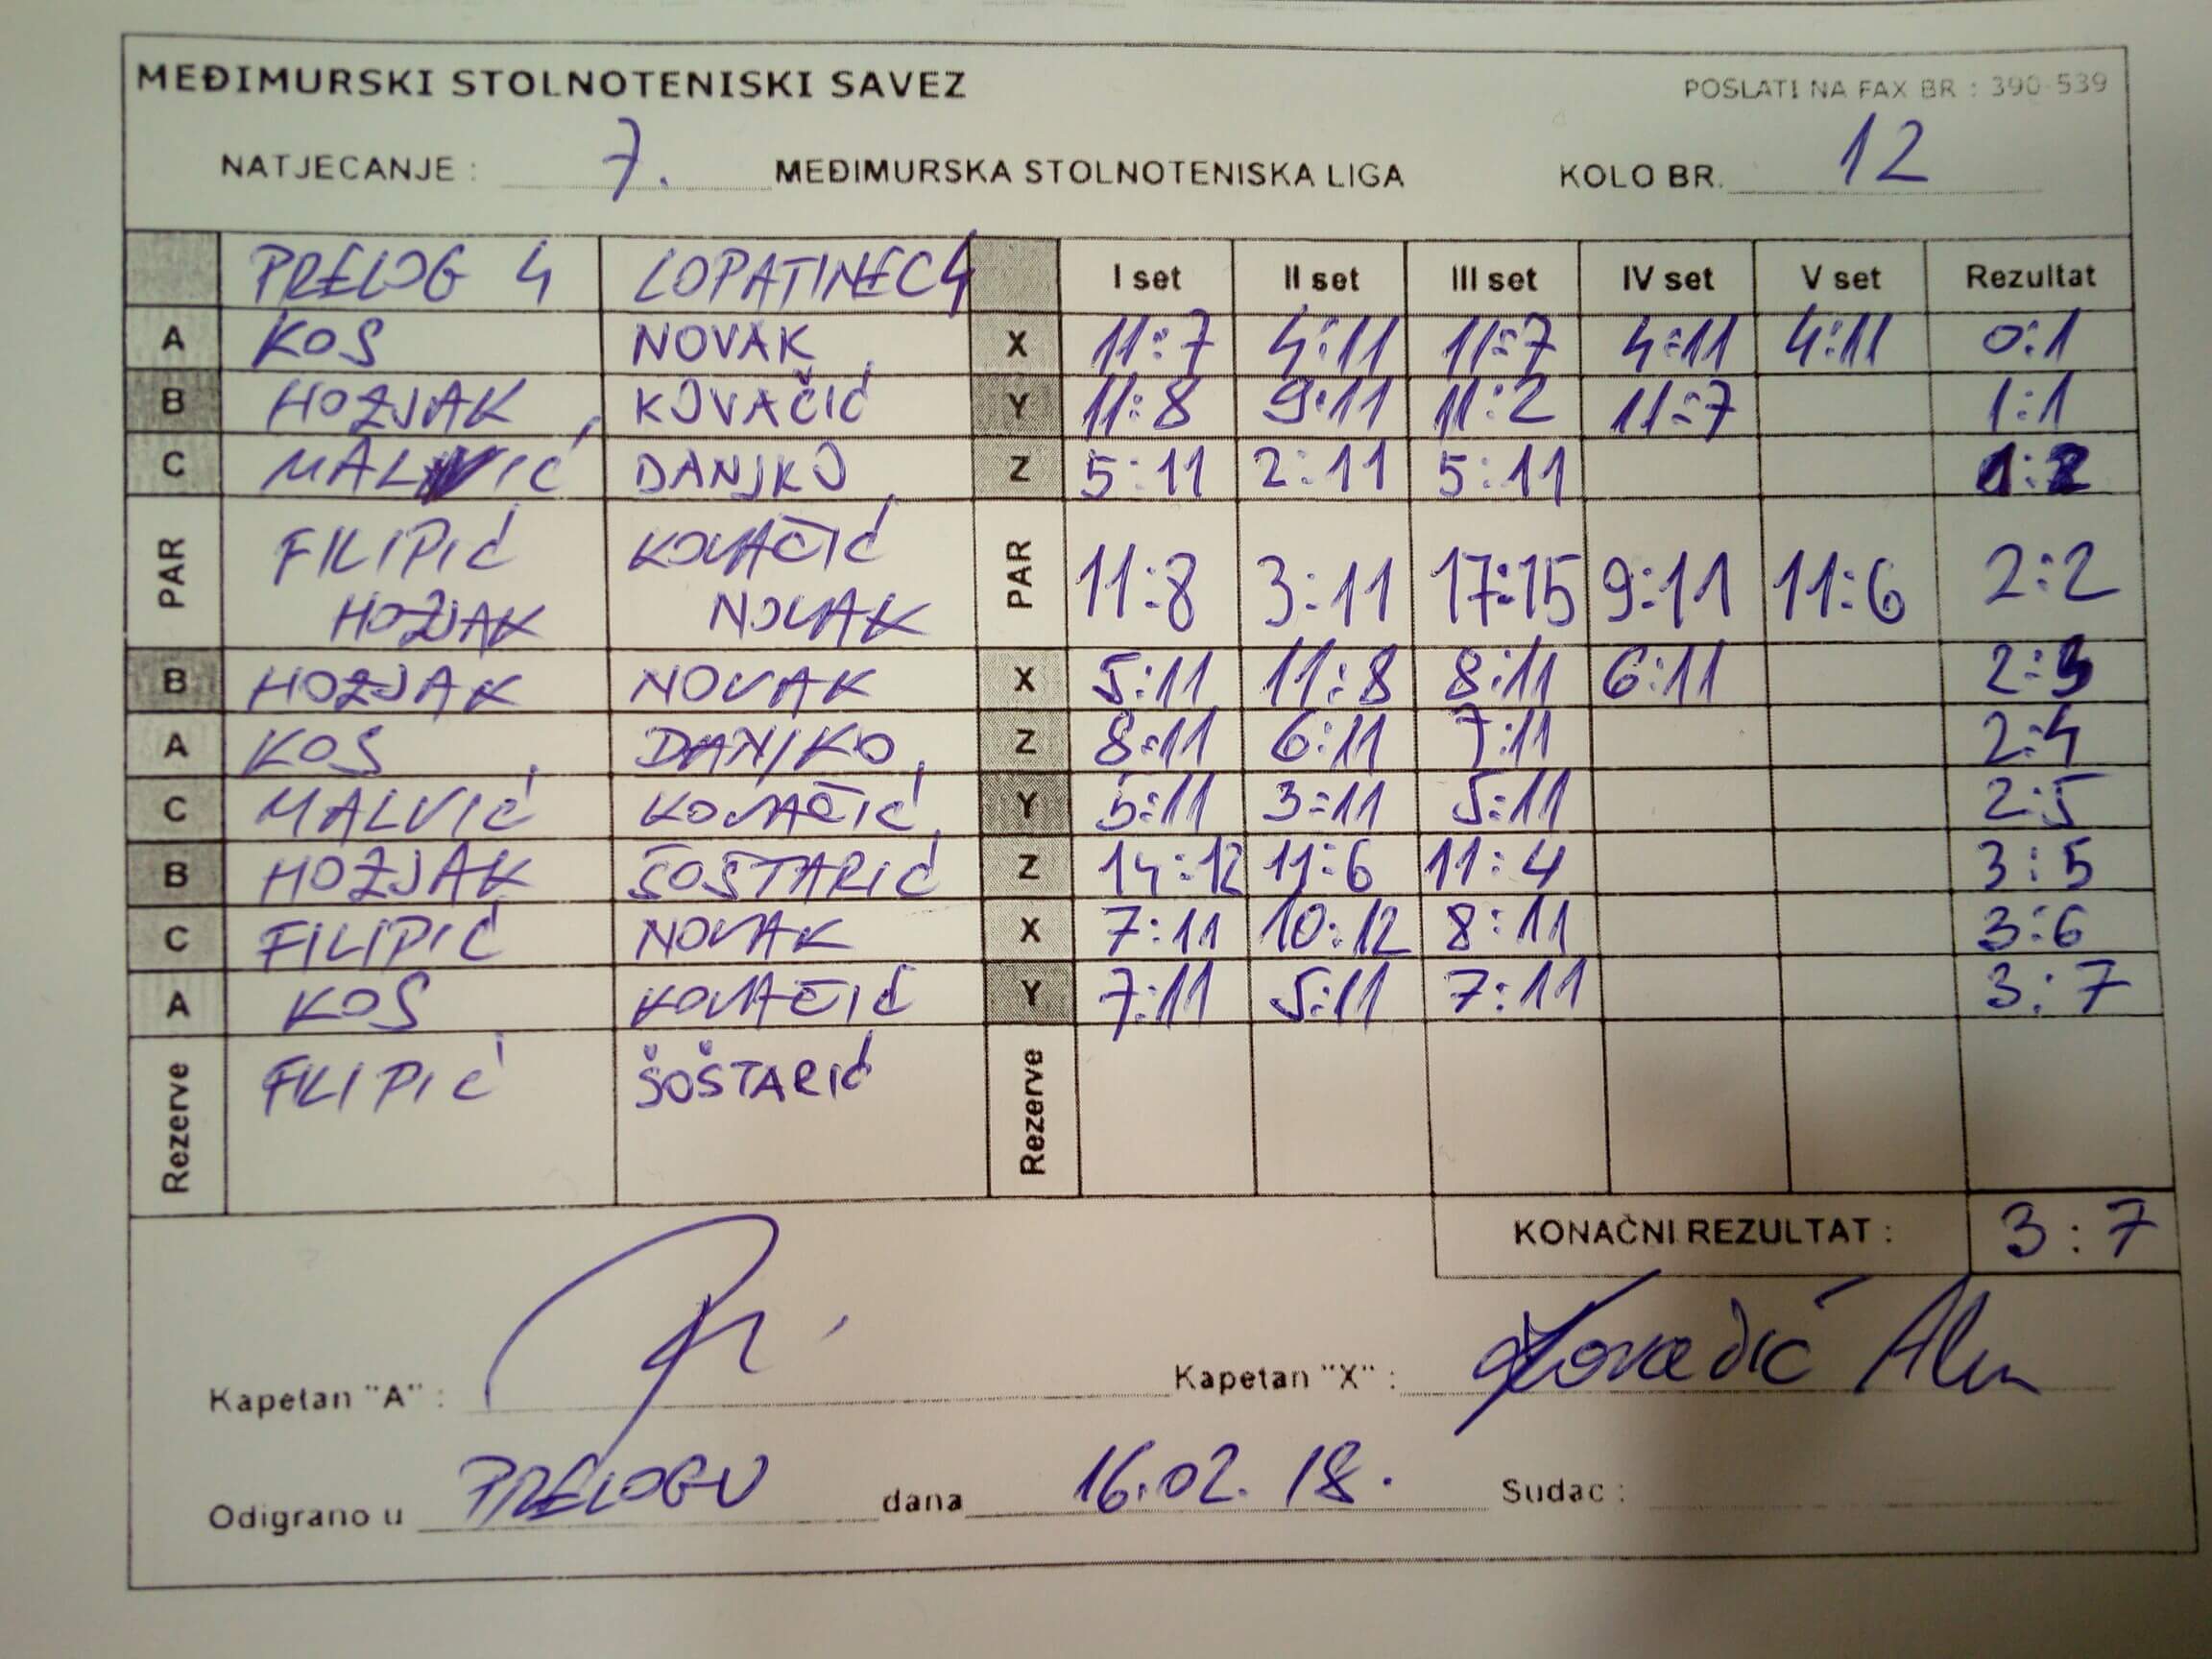 MEĐIMURSKI STOLNOTENISKI SAVEZ POSLATI NA FAX BR : 390-539
NATJECANJE : 7. MEĐIMURSKA STOLNOTENISKA LIGA KOLO BR. 12
PRELOG 4 LOPATINEC 4 I set II set III set IV set V set Rezultat
A KOS NOVAK X 11:7 4:11 11:7 4:11 4:11 0:1
B HOZJAK KOVAČIĆ Y 11:8 9:11 11:2 11:7 1:1
C MALVIĆ DANJKO Z 5:11 2:11 5:11 1:2
PAR FILIPIĆ HOZJAK KOVAČIĆ NOVAK PAR 11:8 3:11 17:15 9:11 11:6 2:2
B HOZJAK NOVAK X 5:11 11:8 8:11 6:11 2:3
A KOS DANJKO Z 8:11 6:11 7:11 2:4
C MALVIĆ KOVAČIĆ Y 5:11 3:11 5:11 2:5
B HOZJAK ŠOŠTARIĆ Z 14:12 11:6 11:4 3:5
C FILIPIĆ NOVAK X 7:11 10:12 8:11 3:6
A KOS KOVAČIĆ Y 7:11 5:11 7:11 3:7
Rezerve FILIPIĆ ŠOŠTARIĆ Rezerve
KONAČNI REZULTAT : 3:7
Kapetan "A" : Kapetan "X" : Kovačić
Odigrano u PRELOGU dana 16.02.18. Sudac :